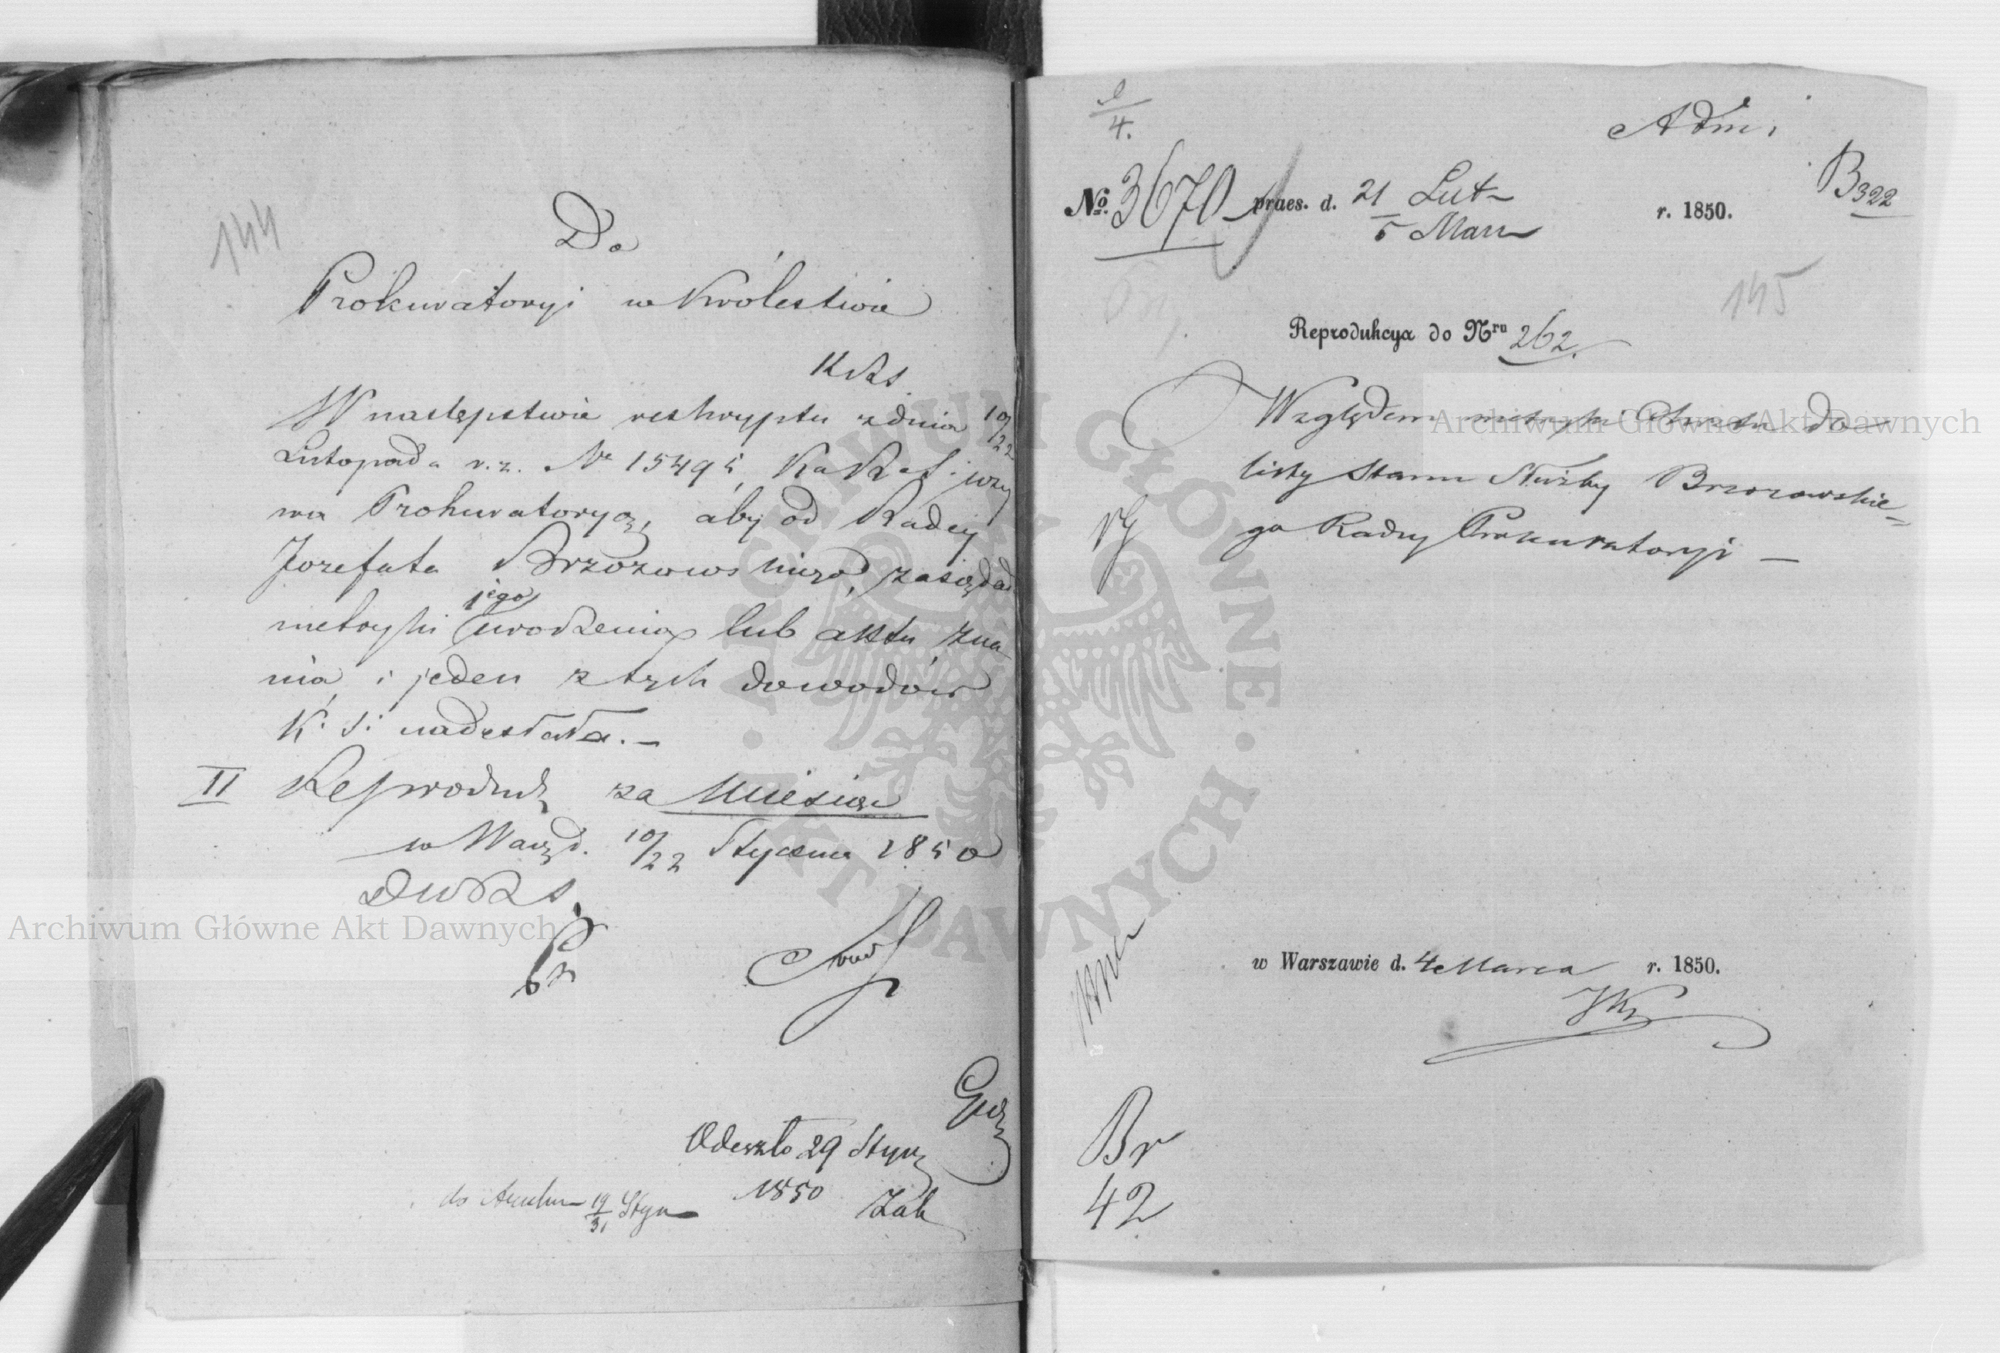 144
Do
Prokuratoryi w Królestwie
KRS
W następstwie reskryptu z dnia 10/22
Listopada r. z. Nr 15495, KaRS i wzy
wa Prokuratoryą, aby od Radcy
Jozefata Brzozowskiego, zażądał
metryki jego urodzenia lub aktu zna
nia, i jeden z tych dowodów
K. S. nadesłała. —
II Reproduk za Miesiąc
w Warsz d. 10/22 Stycznia 1850
DWRS
Odeszło 29 Stycz
1850
do 19/31 Stycz
Zak
4.
Admi
B322
No. 3670 praes. d. 21 Lut / 5 Marc r. 1850.
145
Reprodukcya do Nru 262.
Względem metryki Chrztu do
listy Stanu Służby Brzozowskie=
go Radcy Prokuratoryi —
w Warszawie d. 4 Marca r. 1850.
Br
42
ARCHIWUM GŁÓWNE AKT DAWNYCH
Archiwum Główne Akt Dawnych
Archiwum Główne Akt Dawnych